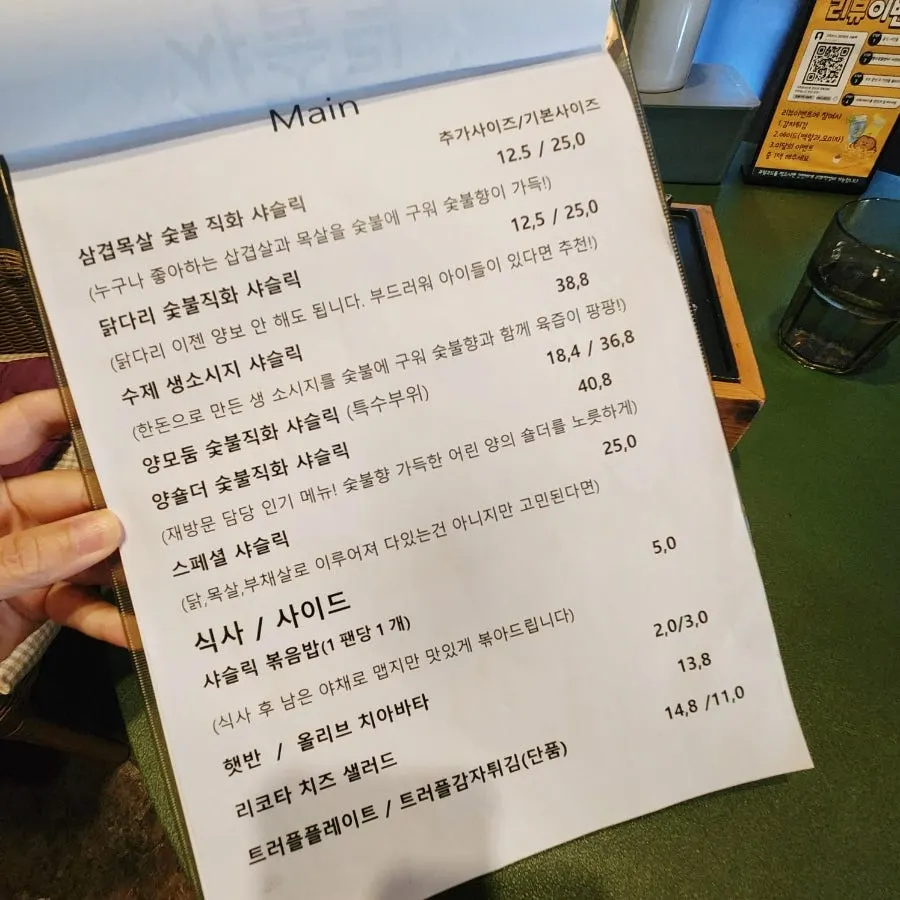 Main
추가사이즈/기본사이즈
12.5 / 25,0
삼겹목살 숯불 직화 샤슬릭
(누구나 좋아하는 삼겹살과 목살을 숯불에 구워 숯불향이 가득!)
12,5 / 25,0
닭다리 숯불직화 샤슬릭
(닭다리 이젠 양보 안 해도 됩니다. 부드러워 아이들이 있다면 추천!)
38,8
수제 생소시지 샤슬릭
(한돈으로 만든 생 소시지를 숯불에 구워 숯불향과 함께 육즙이 팡팡!)
18,4 / 36,8
양모둠 숯불직화 샤슬릭 (특수부위)
40,8
양숄더 숯불직화 샤슬릭
(재방문 담당 인기 메뉴! 숯불향 가득한 어린 양의 숄더를 노릇하게)
25,0
스페셜 샤슬릭
(닭,목살,부채살로 이루어져 다있는건 아니지만 고민된다면)
식사 / 사이드
5,0
샤슬릭 볶음밥(1 팬당 1 개)
(식사 후 남은 야채로 맵지만 맛있게 볶아드립니다)
2,0/3,0
햇반 / 올리브 치아바타
13,8
리코타 치즈 샐러드
14,8 /11,0
트러플플레이트 / 트러플감자튀김(단품)
리뷰이벤
리뷰이벤트에 참여시
1.감자튀김
2.에이드(백향과,오미자)
3.이달의 이벤트
중 1택 해주세요